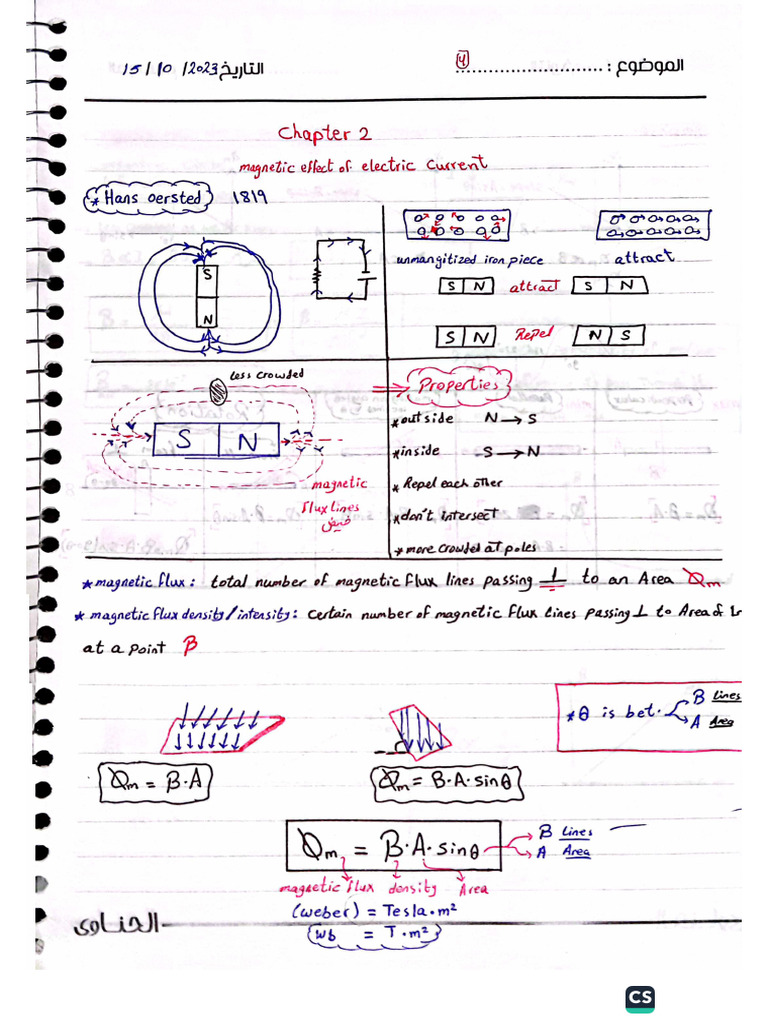 الموضوع : .......................... 4
التاريخ 15 / 10 / 2023
Chapter 2
magnetic effect of electric current
* Hans oersted 1819
S
N
unmangitized iron piece attract
S N attract S N
S N Repel N S
less crowded
S N
magnetic
flux lines
فيض
Properties
* outside N → S
* inside S → N
* Repel each other
* don't intersect
* more crowded at poles
* magnetic flux : total number of magnetic flux lines passing ⊥ to an Area Øm
* magnetic flux density / intensity : certain number of magnetic flux lines passing ⊥ to Area of
at a point B
* θ is bet. B lines
A Area
Øm = B·A
Øm = B·A·sinθ
Øm = B·A·sinθ
B lines
A Area
magnetic flux density Area
(weber) = Tesla·m²
wb = T·m²
الحناوى
CS